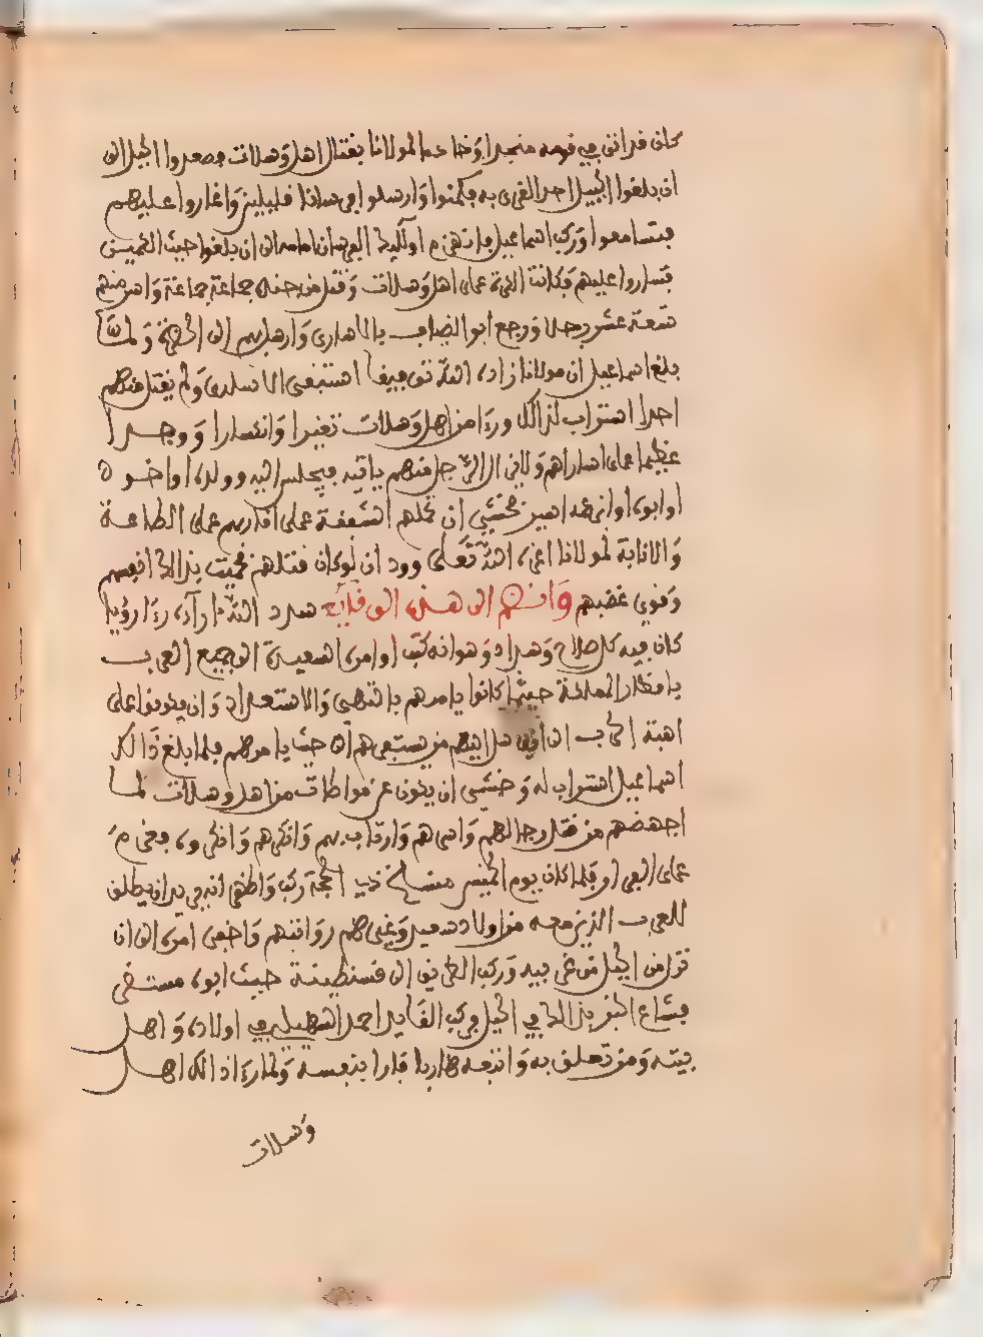 كان قد اتى في فومه منجدا وخادما لمولانا بقتال اهل وسلات فصعدوا الجبل الى
ان بلغوا الجبيل احد القرى به فكمنوا وارسلوا فرسانا قليلين واغاروا عليهم
فتسامعوا وركب اسماعيل الى ان بلغوا حيث الكمين
فتساروا عليهم فكانت الكرة على اهل وسلات وقتل من جنده جماعة جماعة واسر منهم
تسعة عشر رجلا ورجع ابو الضياف بالاسارى وارسلهم الى الحضرة ولما
بلغ اسماعيل ان مولانا زاده الله توفيقا استبقى الاسارى ولم يقتل منهم
احدا استراب لذالك ورءا من اهل وسلات تغيرا وانكسارا ووجدا
عظيما على اساراهم ولان الرجل منهم ياتيه فيجلس اليه وولده او اخوه
او ابوه او ابن عمه اسير فخشي ان تحملهم الشفقة على اقاربهم على الطاعة
والانابة لمولانا اعزه الله تعلى وود ان لو كان قتلهم فحميت بذالك انفسهم
وقوي غضبهم وانضم الى هذه الوقايع سدد الله ءاراءه رءا رؤيا
كان فيه كل صلاح وسداد وهو انه كتب اوامره السعيدة الى جميع العرب
باقطار المملكة حيثما كانوا يامرهم بالتهيي والاستعداد وان يكونوا على
اهبة الحرب الى ان اليهم من يستنفرهم الى حيث يامرهم فلما بلغ ذالك
اسماعيل استراب له وخشي ان يكون عن مواطات من اهل وسلات لما
اجهضهم من قتل رجالهم واسرهم وارتاب بهم وانكرهم وانكروه فعزم
على الفرار فلما كان يوم الخميس منسلخ ذي الحجة ركب واظهر انه يريد ان يطلق
للعرب الذين معه من اولاد سعيد وغيرهم رواتبهم واخفى امره الى ان
نزل من الجبل من غربيه وركب الطريق الى قسنطينة حيث ابوه مستقر
فشاع الخبر بذالك في الجبل فركب القايد احمد السهيلي في اولاده واهل
بيته ومن تعلق به واتبعه هاربا فارا بنفسه ولما رءا ذالك اهل
وسلات